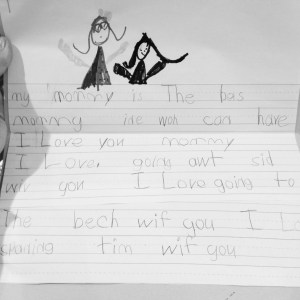 my mommy is The bas
mommy ine won can have
I Love you mommy
I Love goinh owt sid
wif you I Love going to
The bech wif you I L
spaning tim wif you